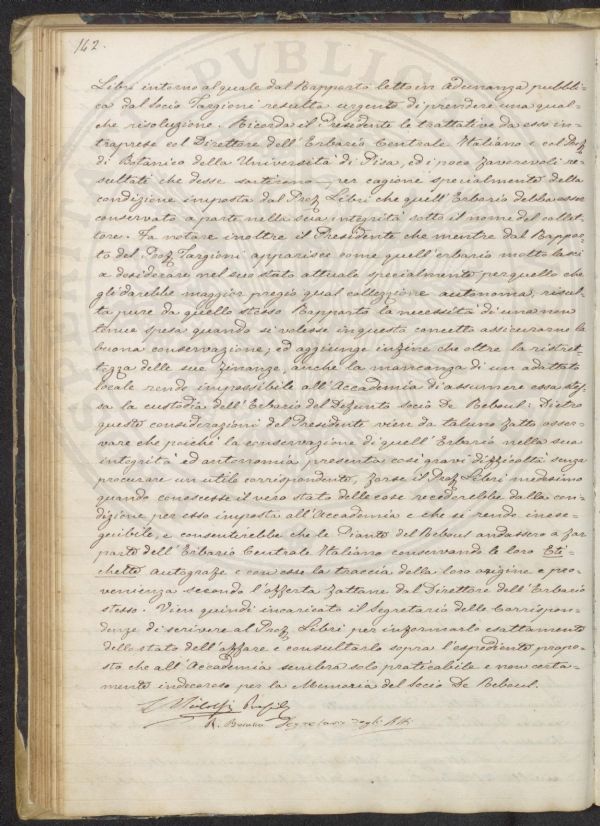 142.
Libri intorno al quale dal Rapporto letto in adunanza pubbli-
ca dal Socio Targioni resulta urgente di prendere una qual-
che risoluzione. Ricorda il Presidente le trattative da esso in-
traprese col Direttore dell'Erbario Centrale Italiano e col Prof.
di Botanica della Università di Pisa, ed i poco favorevoli re-
sultati che desse sortirono per cagione specialmente della
condizione imposta dal Prof. Libri che quell'Erbario debba esser
conservato a parte nella sua integrità sotto il nome del collet-
tore. Fa notare inoltre il Presidente che mentre dal Rappor-
to del Prof. Targioni apparisce come quell'erbario molto lasci
a desiderare nel suo stato attuale specialmente per quello che
gli darebbe maggior pregio qual collezione autonoma, risul-
ta pure da quello stesso Rapporto la necessità di una non
tenue spesa quando si volesse in questo concetto assicurarne la
buona conservazione; ed aggiunge infine che oltre la ristret-
tezza delle sue finanze, anche la mancanza di un adattato
locale rende impossibile all'Accademia di assumere essa stes-
sa la custodia dell'Erbario del Defunto Socio De Reboul: Dietro
queste considerazioni del Presidente vien da taluno fatto osser-
vare che poichè la conservazione di quell'Erbario nella sua
integrità ed autonomia presenta così gravi difficoltà senza
procurare un utile corrispondente, forse il Prof. Libri medesimo
quando conoscesse il vero stato delle cose recederebbe dalla con-
dizione per esso imposta all'Accademia e che si rende inese-
guibile, e consentirebbe che le Piante del Reboul andassero a far
parte dell'Erbario Centrale Italiano conservando le loro Eti-
chette autografe e con esse la traccia della loro origine e pro-
venienza secondo l'offerta fattane dal Direttore dell'Erbario
stesso. Vien quindi incaricato il Segretario delle Corrispon-
denze di scrivere al Prof. Libri per informarlo esattamente
dello stato dell'affare e consultarlo sopra l'espediente propo-
sto che all'Accademia sembra solo praticabile e non certa-
mente indecoroso per la Memoria del Socio De Reboul.
Ridolfi
R. Segretario degli Atti